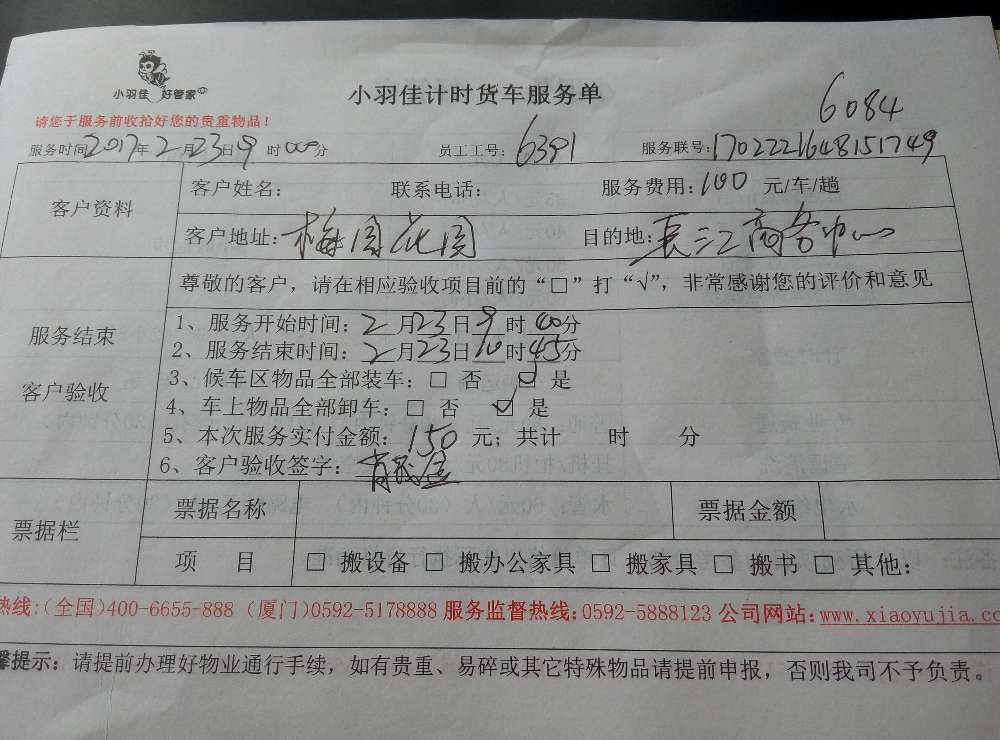 小羽佳 好管家
小羽佳计时货车服务单
6084
请您于服务前收拾好您的贵重物品！
服务时间2017年2月23日9时00分 员工工号：6391 服务联号：1702221648151749
客户资料
客户姓名： 联系电话： 服务费用：100 元/车/趟
客户地址：梅园花园 目的地：长江商务中心
服务结束
客户验收
尊敬的客户，请在相应验收项目前的“□”打“√”，非常感谢您的评价和意见
1、服务开始时间：2月23日9时00分
2、服务结束时间：2月23日10时45分
3、候车区物品全部装车：□ 否 ☑ 是
4、车上物品全部卸车：□ 否 ☑ 是
5、本次服务实付金额：150 元；共计 时 分
6、客户验收签字：
票据栏
票据名称 票据金额
项 目 □ 搬设备 □ 搬办公家具 □ 搬家具 □ 搬书 □ 其他：
热线：(全国)400-6655-888 (厦门)0592-5178888 服务监督热线：0592-5888123 公司网站：www.xiaoyujia.co
馨提示：请提前办理好物业通行手续，如有贵重、易碎或其它特殊物品请提前申报，否则我司不予负责。